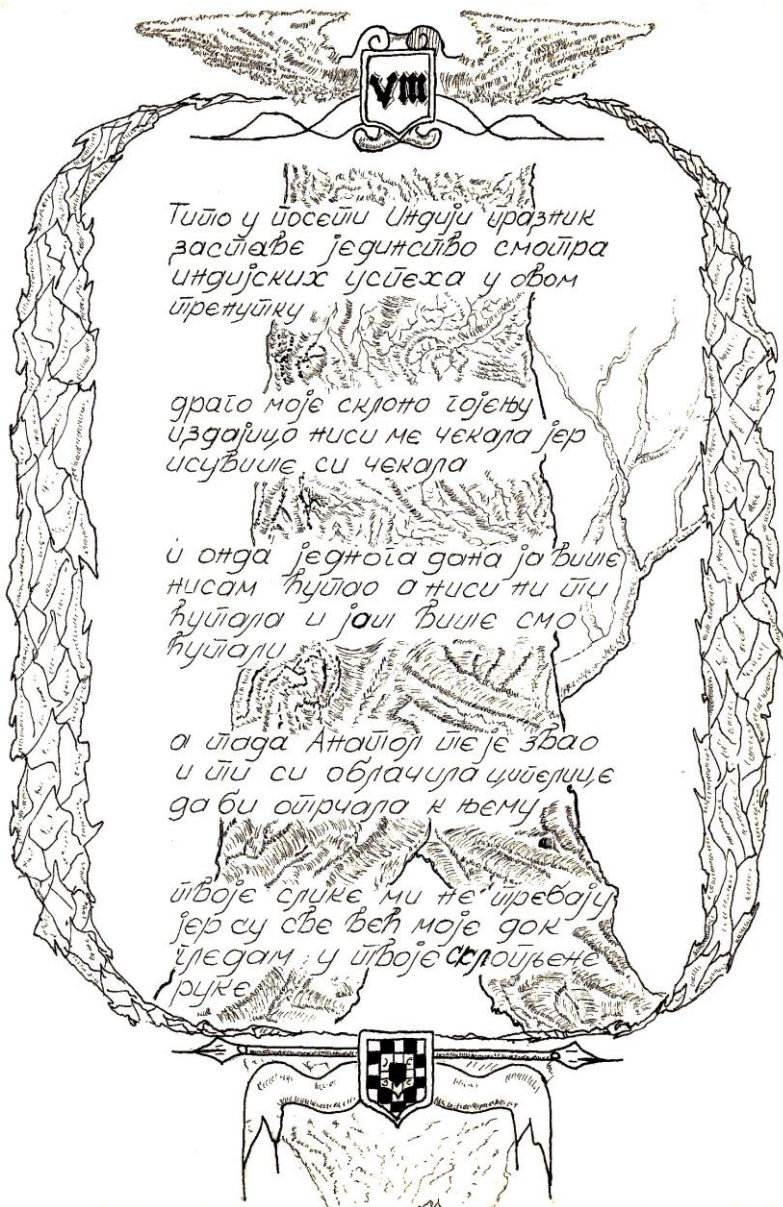 VIII
Тито у посети Индији празник
заставе јединство смотра
индијских успеха у овом
тренутку
драго моје склоно гојењу
издајицо ниси ме чекала јер
исувише си чекала
и онда једнога дана ја више
нисам ћутао а ниси ни ти
ћутала и јаш више смо
ћутали
а тада Анатол те је звао
и ти си облачила ципелице
да би отрчала к њему
твоје слике ми не требају
јер су све већ моје док
гледам у твоје склопљене
руке